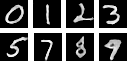 0 1 2 3
5 7 8 9